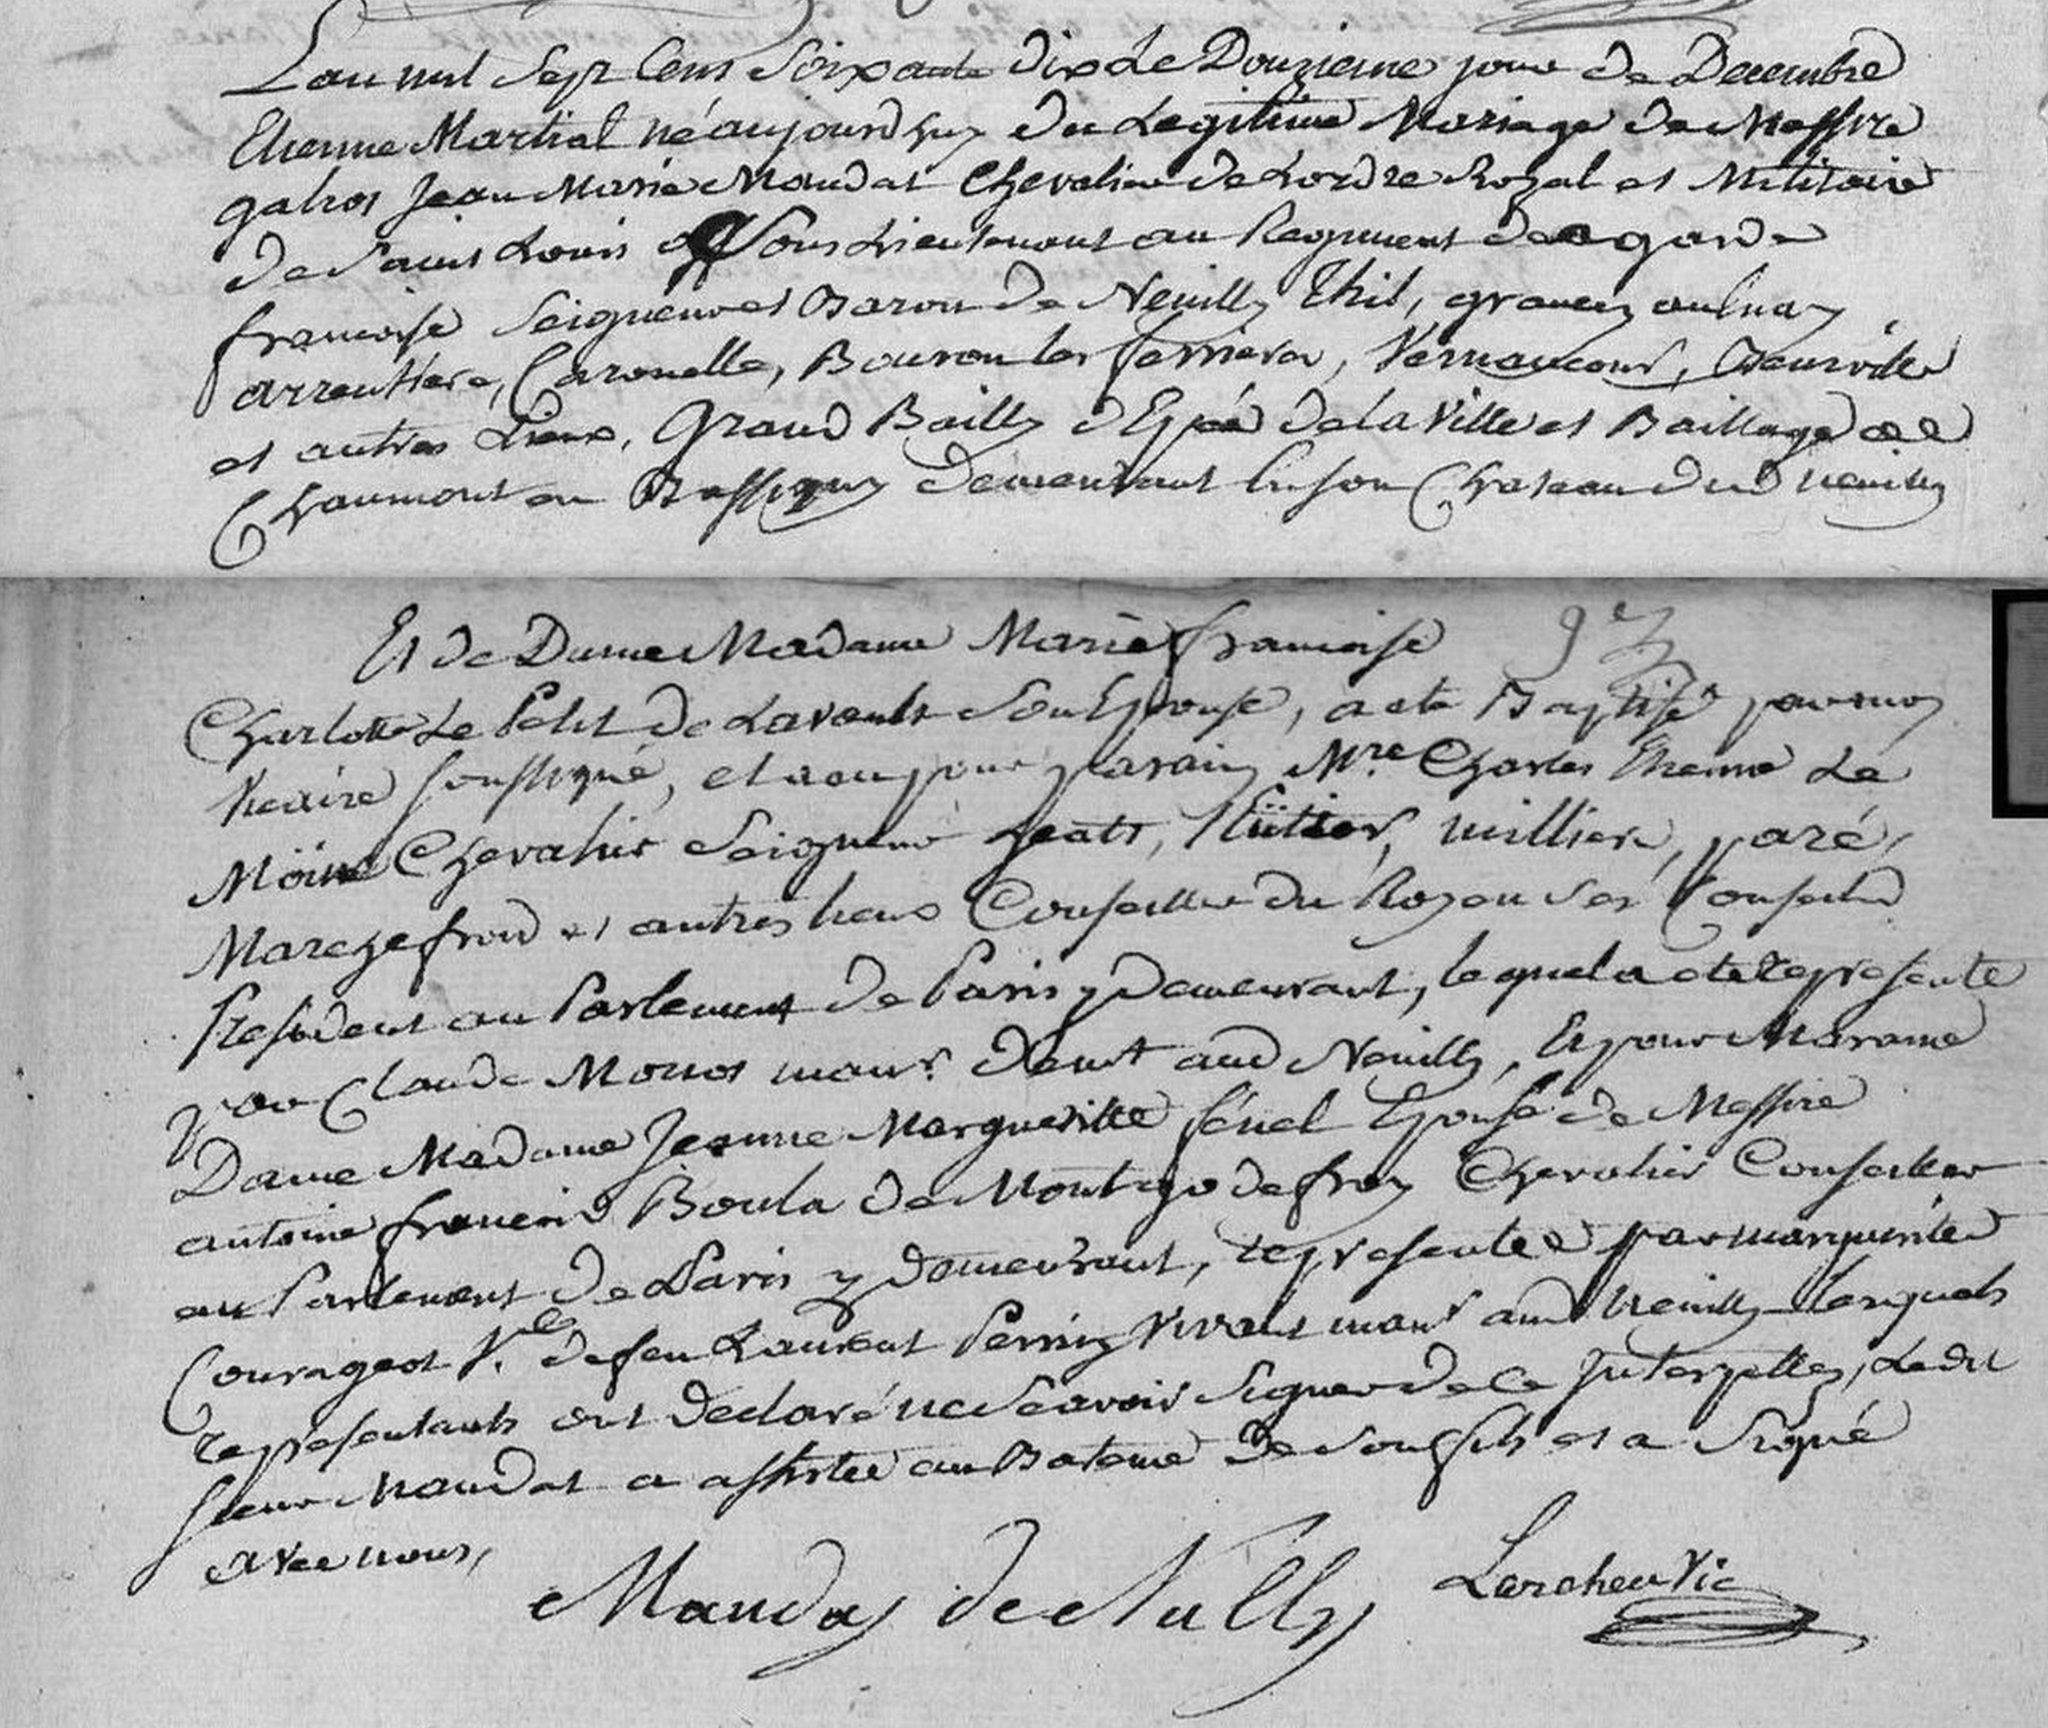 Lan mil Sept Cent Soixante dix Le Douzieme jour de Decembre
Etienne Martial né aujourdhuy du Legitime Mariage de Messire
galiot Jean Marie Mandat Chevalier de Lordre Royal et Militaire
de Saint Louis Sous Lieutenant au Regiment de garde
francoise Seigneur et Baron de Neuilly Thil, grancey aulnay,
arrentiere, Bouron les ferrieres, Vernancour,
et autres Lieux, Grand Bailly dEpée de la Ville et Baillage de
Chaumont en Bassigny demeurant en son Chateau dud neuilly
Et de Dame Madame Marie francoise
Charlotte Le Petit de Lavaulx Son Epouse, a ete Baptisé par moy
Vicaire soussigné, et a eu pour parain Mre Charles Etienne Le
Moine Chevalier Seigneur milliere, paré,
et autres lieux Conseiller du Roy en ses Conseils
President au Parlement de Paris y Demeurant, lequel a ete represente
par Claude Monot man.r demt aud Neuilly, Et pour Maraine
Dame Madame Jeanne Margueritte fénel Epouse de Messire
antoine francois Boula de Montgodefroy Chevalier Conseiller
au Parlement de Paris y demeurant, representée par marguerite
Courageot V.e de feu Laurent Perrin Vivant man.r aud Neuilly Lesquels
representants ont declaré ne Scavoir Signer de ce Interpelles, Ledit
sieur Mandat a assistée au Bateme de son fils et a Signé
avec nous,
Mandat de Nully Larcher Vic